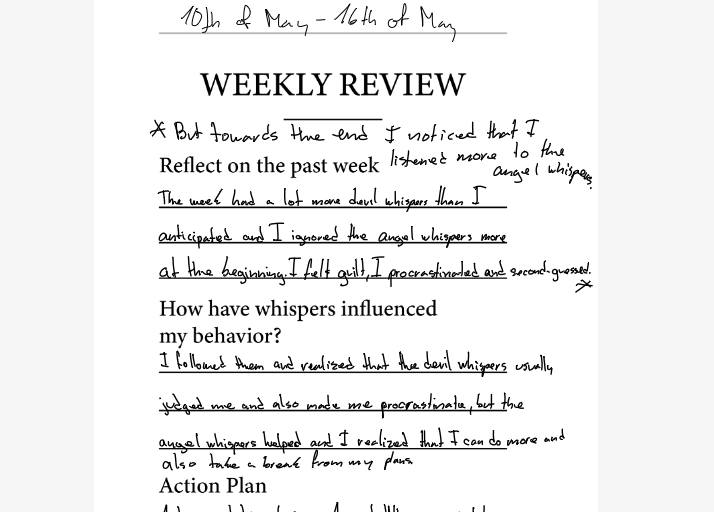 10th of May - 16th of May
WEEKLY REVIEW
* But towards the end I noticed that I
listened more to the
angel whispers.
Reflect on the past week
The week had a lot more devil whispers than I
anticipated and I ignored the angel whispers more
at the beginning. I felt guilt, I procrastinated and second-guessed.
*
How have whispers influenced
my behavior?
I followed them and realized that the devil whispers usually
judged me and also made me procrastinate, but the
angel whispers helped and I realized that I can do more and
also take a break from my plans.
Action Plan